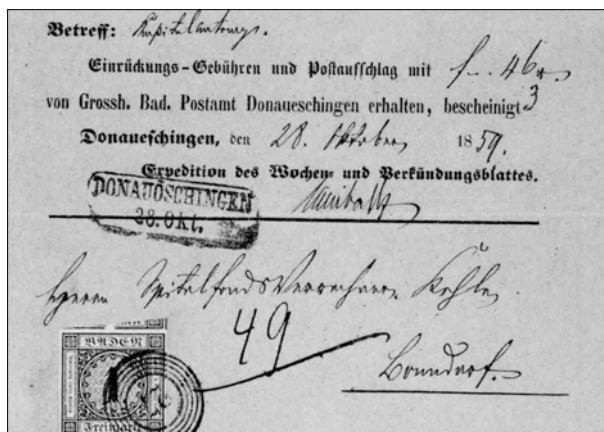 Betreff: Kapitalantrags.
Einrückungs-Gebühren und Postaufschlag mit f — 46 x.
von Grossh. Bad. Postamt Donaueschingen erhalten, bescheinigt 3
Donaueschingen, den 28. Oktober 1859.
Expedition des Wochen- und Verkündungsblattes.
DONAUÖSCHINGEN
28. Okt.
Herrn Spitalfonds Verrechner Kehle
49
Bonndorf.
BADEN
Freimarke